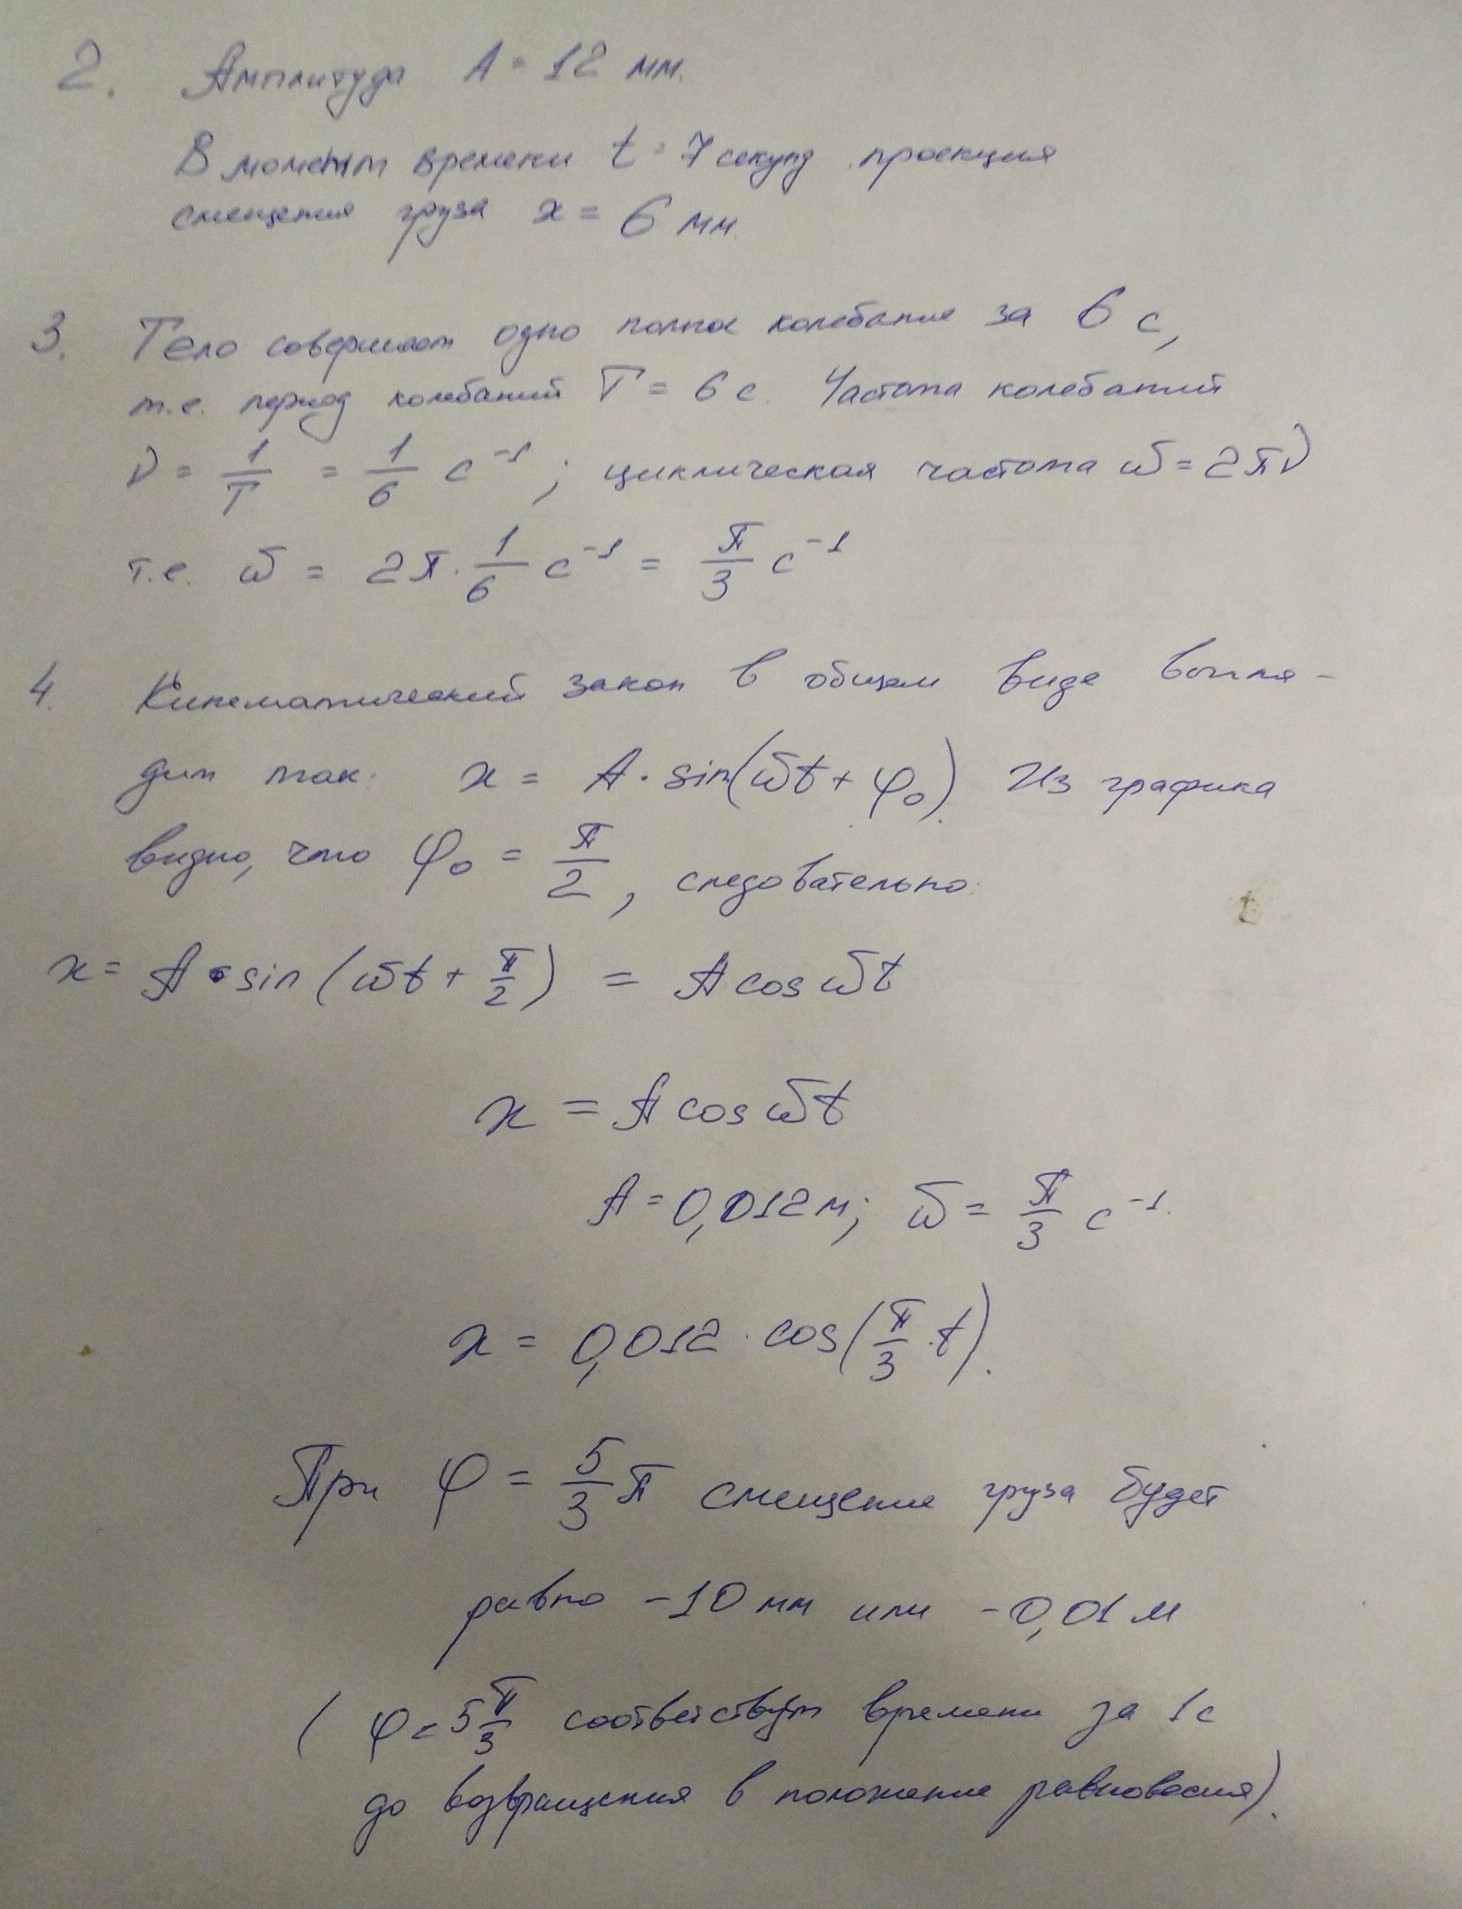 2. Амплитуда A = 12 мм.
В момент времени t = 7 секунд проекция
смещения груза x = 6 мм.
3. Тело совершает одно полное колебание за 6 с,
т.е. период колебаний T = 6 с. Частота колебаний
ν = 1/T = 1/6 с⁻¹; циклическая частота ω = 2πν
т.е. ω = 2π · 1/6 с⁻¹ = π/3 с⁻¹
4. Кинематический закон в общем виде выгля-
дит так: x = A · sin(ωt + φ₀). Из графика
видно, что φ₀ = π/2, следовательно:
x = A · sin(ωt + π/2) = A cos ωt
x = A cos ωt
A = 0,012 м; ω = π/3 с⁻¹.
x = 0,012 · cos(π/3 · t).
При φ = 5/3 π смещение груза будет
равно -10 мм или -0,01 м
(φ = 5π/3 соответствует времени за 1 с
до возвращения в положение равновесия).